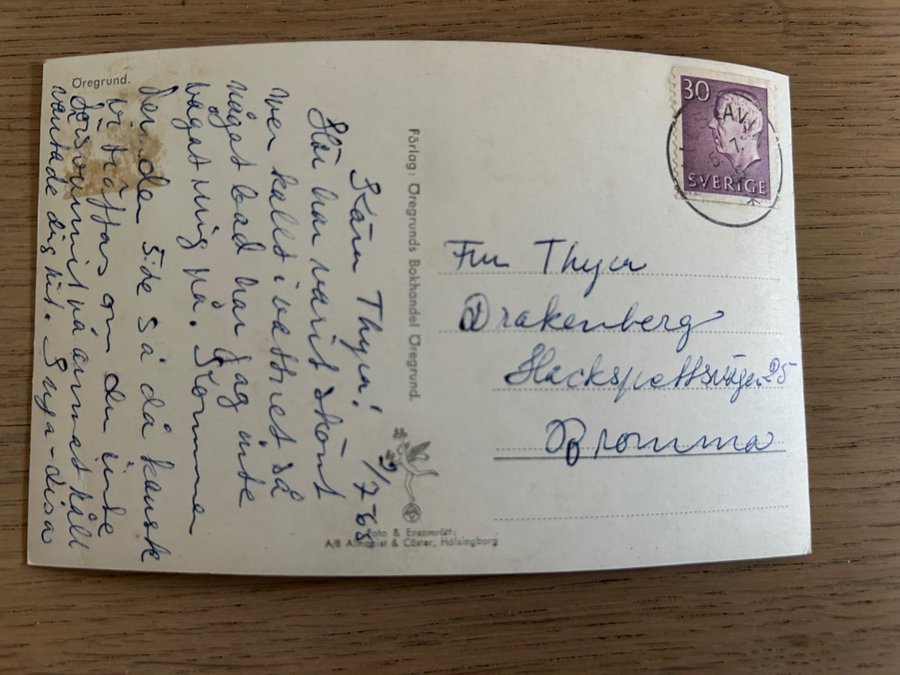 Öregrund.
9/7-65
Kära Thyra!
Här har varit skönt
men kallt i vattnet så
något bad har jag inte
vågat mig på. Kommer
den 5:te så då kanske
vi träffas om du inte
försvunnit på annat håll
väntade dig hit.
Förlag: Öregrunds Bokhandel Öregrund.
Foto & Ensamrätt:
A/B Almquist & Cöster, Hälsingborg
30
SVERIGE
Fru Thyra
Drakenberg
Hackspettsvägen 25
Bromma